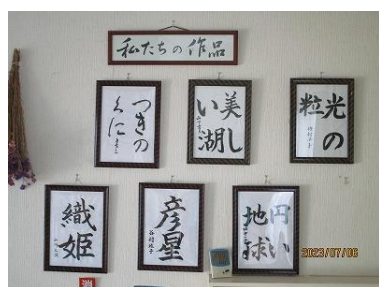 私たちの作品
つきの
くに
美し
い湖
光の
粒
織
姫
彦星
円い
地球
2023/07/06